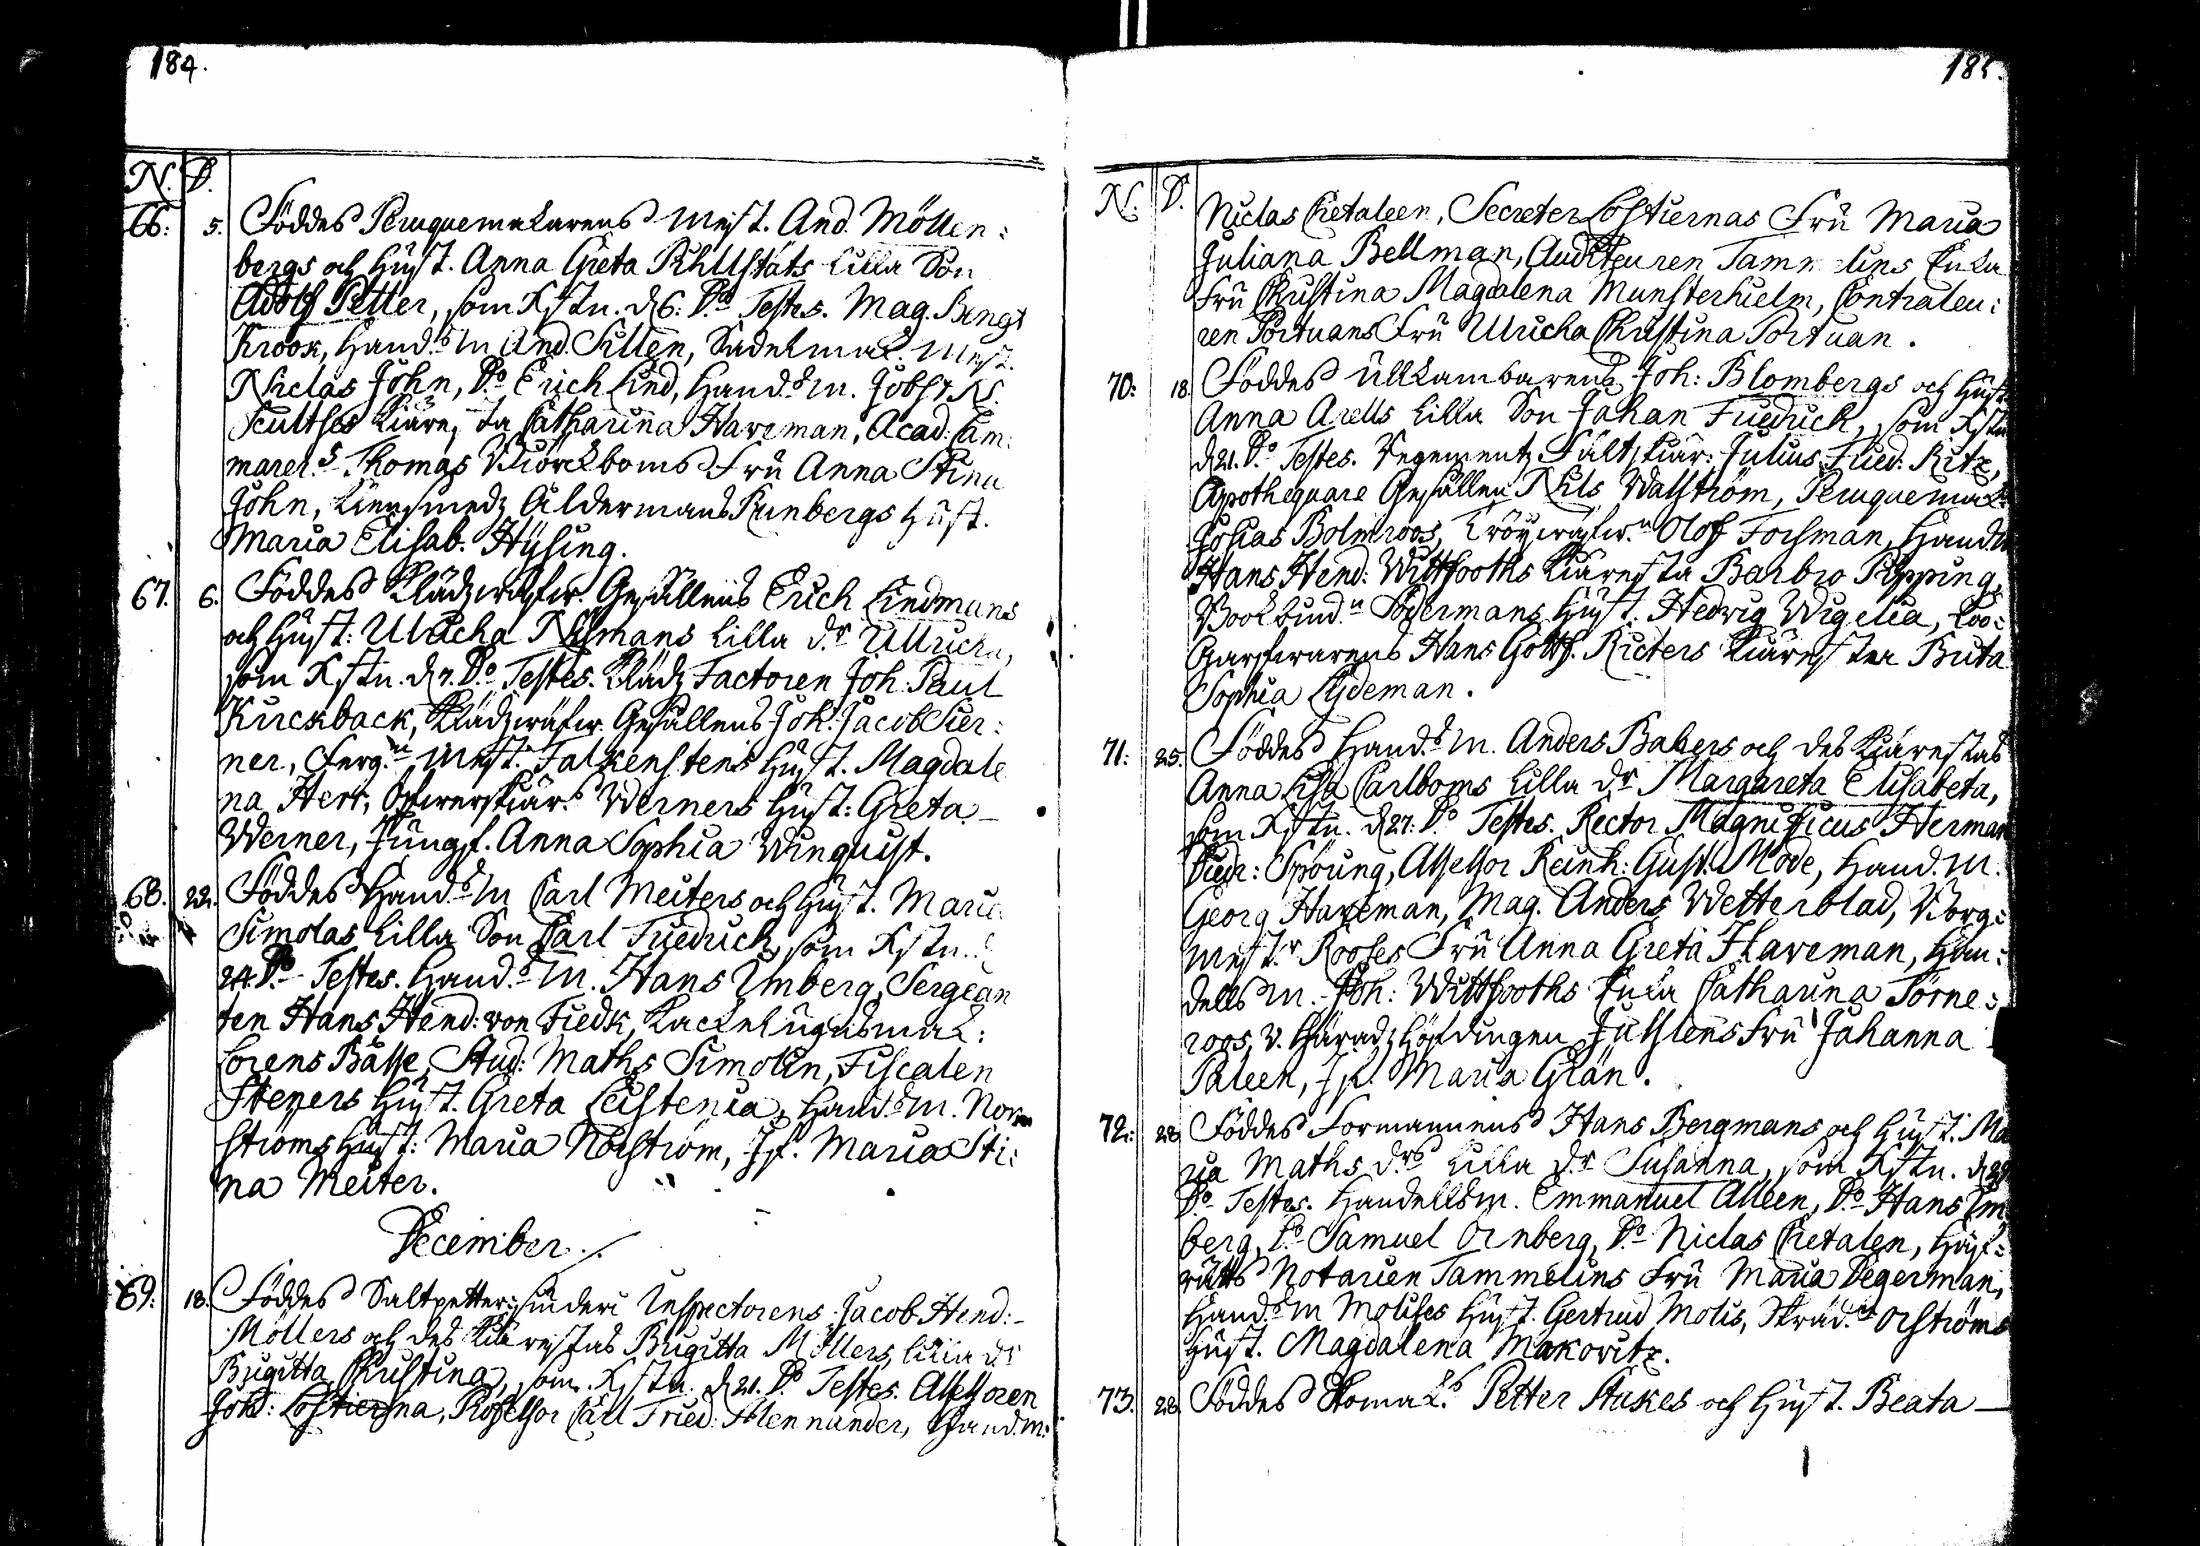 184.
N. D.
66: 5. Föddes Peruquemakarens Mest. And. Möllen:
bergs och Hust. Anna Greta Pihllstäts lilla Son
Adolf Petter, som Xstn. d. 6. Do Testes. Mag. Bengt
Krook, Hand.s m And. Sillen, Sadelmak. Mest.
Niclas John, Do Erich Lind, Hand.s m. Jobst N.
Scultses Kiäresta Catharina Hareman, Acad: Cam:
marer.s Thomas Biörckboms Fru Anna Stina
John, Kleensmedz Åldermans Runbergs Hust.
Maria Elisab. Hysing.
67. 6. Föddes Klädzwäfw. Gesällens Erich Lindmans
och Hust: Ulricha Nymans lilla dr Ullrica,
som Xstn. d. 7. Do Testes. Klädz Factoren Joh. Paul
Kirckback, Klädzwäfw. Gesällens Joh: Jacob Sier:
ner, Ferg.n Mest. Falkenstens Hust. Magdale
na Herr, Öfwerskiär.s Werners Hust: Greta
Werner, Jungf. Anna Sophia Winquist.
68. 22. Föddes Hand.s m Carl Meiters och Hust. Maria
Simolas lilla Son Carl Friedrich, som Xstn. d
24. Do Testes. Hand.s m. Hans Imberg, Sergean
ten Hans Hend: von Fiedk, Kackelugnsmak:
Lorens Båsse, Stud: Maths Simolin, Fiscalen
Steyers Hust. Greta Leistenia, Hand.s m. Nor
ströms Hust: Maria Norström, Jf. Maria Sti:
na Meiter.
December.
69: 18. Föddes Saltpetter: siuderi Inspectorens Jacob Hend:
Möllers och des Kiärestas Brigitta Möllers, lilla dr
Brigitta Christina, som Xstn. d. 21. Do Testes. Assessoren
Joh: Lostierna, Professor Carl Fried: Mennander, Hand.m:
185.
N. D.
Niclas Cretaleen, Secreter Lostiernas Fru Maria
Juliana Bellman, Auditeuren Tammelins Enka
Fru Christina Magdalena Munsterhielm, Contraleu:
ren Portuans Fru Ulricha Christina Portuan.
70: 18. Föddes Ullkambarens Joh: Blombergs och Hust.
Anna Arells lilla Son Johan Friedrich, som Xstn
d. 21. Do Testes. Regementz Fältskiär: Julius Fried. Ritz,
Apothequare Gesällen Nils Walström, Peruquemak.
Josias Bolmroos, Tröÿwäfw.n Olof Forsman, Hand.m
Hans Hend: Wittfooths Kiäresta Barbro Pipping,
Bookbind.n Södermans Hust. Hedvig Wigelia, Loo:
Garfwarens Hans Gottf. Ricters Kiärestea Brita
Sophia Lydeman.
71: 25. Föddes Hand.s m. Anders Babers och des Kiärestas
Anna Lisa Carlboms lilla dr Margareta Elisabeta,
som Xstn. d. 27: Do Testes. Rector Magnificus Herman
Diedr: Spöring, Assessor Reinh: Gust: Mode, Hand. m.
Georg Hareman, Mag. Anders Wetterblad, Borg:
mest.r Rooses Fru Anna Greta Hareman, Han:
dells m. Joh: Wittfooths Enka Catharina Törne:
roos, V. Häradz Höfdingen Juslens Fru Johanna
Paleen, Jf. Maria Grän.
72: 28. Föddes Formannens Hans Bergmans och Hust. Ma
ria Maths drs lilla dr Susanna, som Xstn. d. 29
Do Testes. Handells m. Emmanuel Alleen, Do Hans Im
berg, Do Samuel Örnberg, Do Niclas Cretalen, Hof:
rätts Notarien Tammelins Fru Maria Degerman,
Hand.s m Molises Hust. Gertrud Molis, Skräd.n Orströms
Hust. Magdalena Makovitz.
73. 28. Föddes Skomak.s Petter Stakes och Hust. Beata